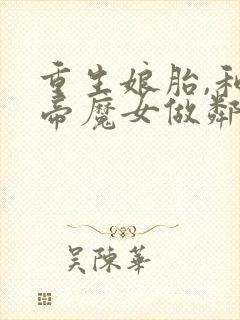 重生娘胎,和
帝魔女做鄰
吴陳華